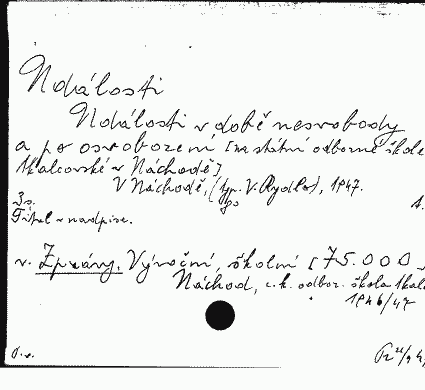 Události
Události v době nesvobody
a po osvobození [na státní odborné škole
tkalcovské v Náchodě]
V Náchodě, (typ. V. Rydlo), 1947.
8°
Titul v nadpise.
v. Zprávy, Výroční, školní [75.000
Náchod, c.k. odbor. škola tkal
1946/47